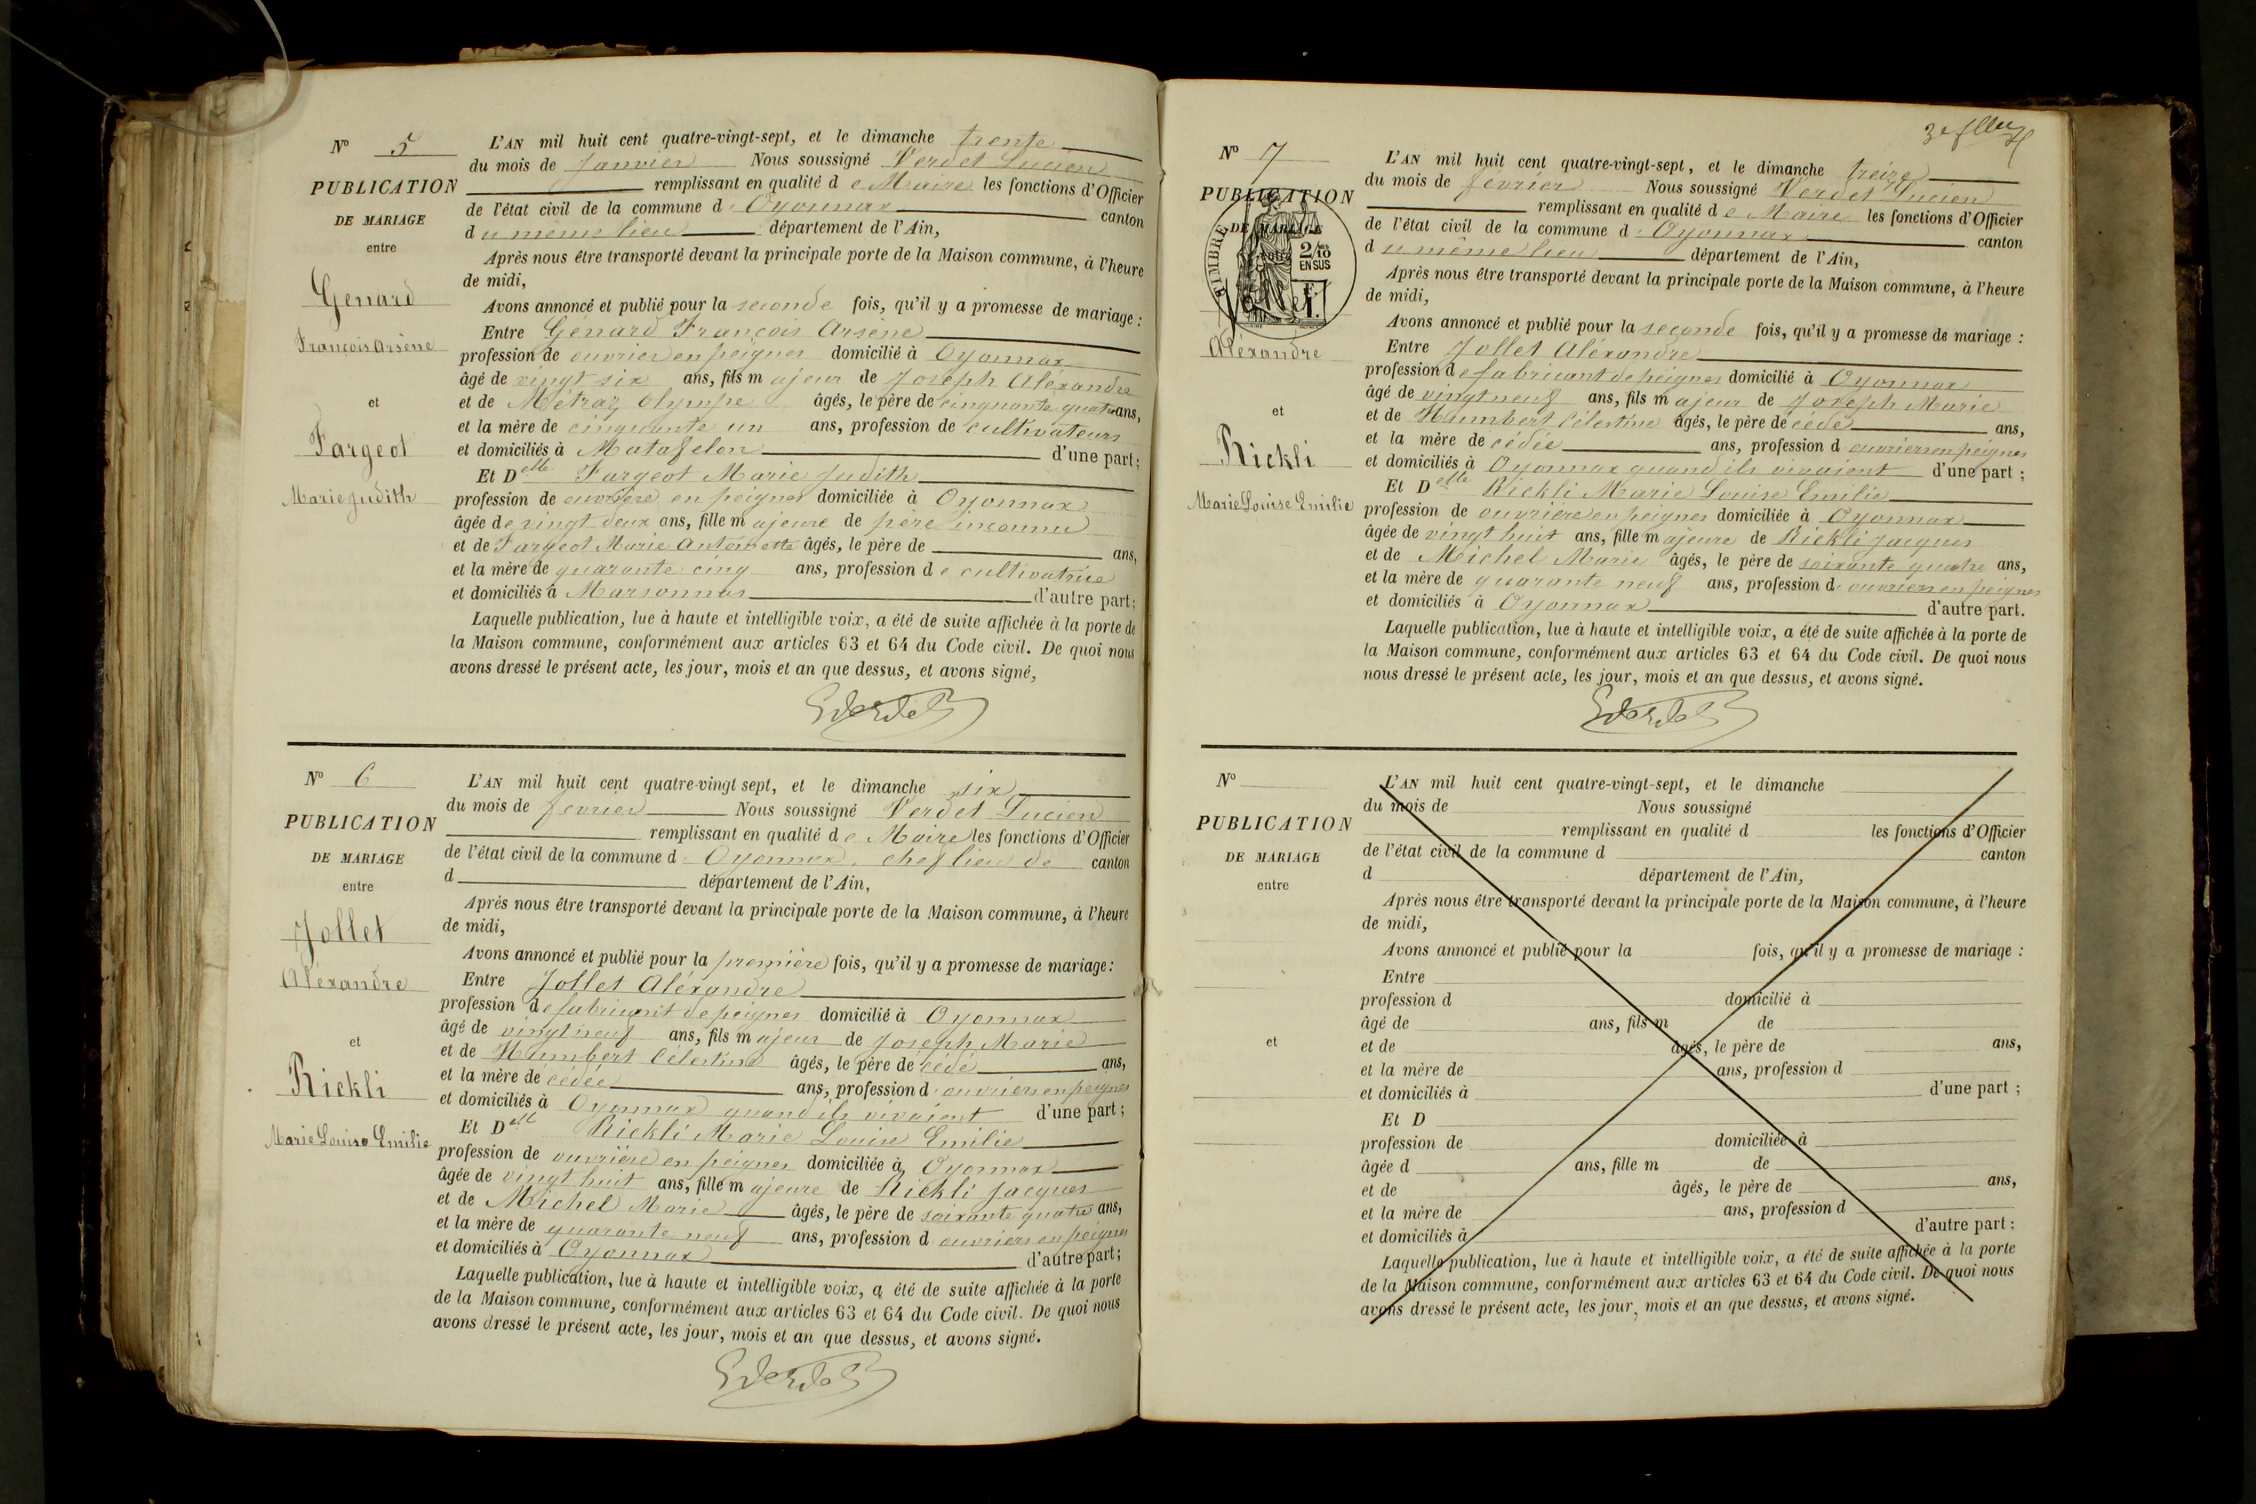 N° 5
PUBLICATION
DE MARIAGE
entre
Genard
François Arsène
et
Fargeot
Marie Judith
L'AN mil huit cent quatre-vingt-sept, et le dimanche trente
du mois de Janvier Nous soussigné Verdet Lucien
remplissant en qualité de Maire les fonctions d'Officier
de l'état civil de la commune d Oyonnax canton
du même lieu département de l'Ain,
Après nous être transporté devant la principale porte de la Maison commune, à l'heure
de midi,
Avons annoncé et publié pour la seconde fois, qu'il y a promesse de mariage :
Entre Génard François Arsene
profession de ouvrier en peignes domicilié à Oyonnax
âgé de vingt six ans, fils majeur de Joseph Aléxandre
et de Métraz Olympe âgés, le père de cinquante quatre ans,
et la mère de cinquante un ans, profession de cultivateurs
et domiciliés à Matafelon d'une part ;
Et Delle Fargeot Marie Judith
profession de ouvrière en peignes domiciliée à Oyonnax
âgée de vingt deux ans, fille majeure de père inconnu
et de Fargeot Marie Antoinette âgés, le père de ans,
et la mère de quarante cinq ans, profession de cultivatrice
et domiciliés à Marsonnas d'autre part ;
Laquelle publication, lue à haute et intelligible voix, a été de suite affichée à la porte de
la Maison commune, conformément aux articles 63 et 64 du Code civil. De quoi nous
avons dressé le présent acte, les jour, mois et an que dessus, et avons signé,
N° 6
PUBLICATION
DE MARIAGE
entre
Jollet
Aléxandre
et
Rickli
Marie Louise Emilie
L'AN mil huit cent quatre-vingt sept, et le dimanche six
du mois de fevrier Nous soussigné Verdet Lucien
remplissant en qualité de Maire les fonctions d'Officier
de l'état civil de la commune d Oyonnax, chef lieu de canton
d département de l'Ain,
Après nous être transporté devant la principale porte de la Maison commune, à l'heure
de midi,
Avons annoncé et publié pour la première fois, qu'il y a promesse de mariage :
Entre Jollet Aléxandre
profession de fabricant de peignes domicilié à Oyonnax
âgé de vingt neuf ans, fils majeur de Joseph Marie
et de Humbert Célestine âgés, le père de cédé ans,
et la mère de cédée ans, profession d ouvriers en peignes
et domiciliés à Oyonnax quand ils vivaient d'une part ;
Et Delle Rickli Marie Louise Emilie
profession de ouvrière en peignes domiciliée à Oyonnax
âgée de vingt huit ans, fille majeure de Rickli Jacques
et de Michel Marie âgés, le père de soixante quatre ans,
et la mère de quarante neuf ans, profession d ouvriers en peignes
et domiciliés à Oyonnax d'autre part ;
Laquelle publication, lue à haute et intelligible voix, a été de suite affichée à la porte
de la Maison commune, conformément aux articles 63 et 64 du Code civil. De quoi nous
avons dressé le présent acte, les jour, mois et an que dessus, et avons signé.
N° 7
PUBLICATION
DE MARIAGE
TIMBRE
2/10
EN SUS
Aléxandre
et
Rickli
Marie Louise Emilie
L'AN mil huit cent quatre-vingt-sept, et le dimanche treize
du mois de février Nous soussigné Verdet Lucien
remplissant en qualité de Maire les fonctions d'Officier
de l'état civil de la commune d Oyonnax canton
du même lieu département de l'Ain,
Après nous être transporté devant la principale porte de la Maison commune, à l'heure
de midi,
Avons annoncé et publié pour la seconde fois, qu'il y a promesse de mariage :
Entre Jollet Aléxandre
profession de fabricant de peignes domicilié à Oyonnax
âgé de vingt neuf ans, fils majeur de Joseph Marie
et de Humbert Célestine âgés, le père de cédé ans,
et la mère de cédée ans, profession d ouvriers en peignes
et domiciliés à Oyonnax quand ils vivaient d'une part ;
Et Delle Rickli Marie Louise Emilie
profession de ouvrière en peignes domiciliée à Oyonnax
âgée de vingt huit ans, fille majeure de Rickli Jacques
et de Michel Marie âgés, le père de soixante quatre ans,
et la mère de quarante neuf ans, profession d ouvriers en peignes
et domiciliés à Oyonnax d'autre part.
Laquelle publication, lue à haute et intelligible voix, a été de suite affichée à la porte de
la Maison commune, conformément aux articles 63 et 64 du Code civil. De quoi nous
nous dressé le présent acte, les jour, mois et an que dessus, et avons signé.
N°
PUBLICATION
DE MARIAGE
entre
et
L'AN mil huit cent quatre-vingt-sept, et le dimanche
du mois de Nous soussigné
remplissant en qualité d les fonctions d'Officier
de l'état civil de la commune d canton
d département de l'Ain,
Après nous être transporté devant la principale porte de la Maison commune, à l'heure
de midi,
Avons annoncé et publié pour la fois, qu'il y a promesse de mariage :
Entre
profession d domicilié à
âgé de ans, fils m de
et de âgés, le père de ans,
et la mère de ans, profession d
et domiciliés à d'une part ;
Et D
profession de domiciliée à
âgée d ans, fille m de
et de âgés, le père de ans,
et la mère de ans, profession d
et domiciliés à d'autre part ;
Laquelle publication, lue à haute et intelligible voix, a été de suite affichée à la porte
de la Maison commune, conformément aux articles 63 et 64 du Code civil. De quoi nous
avons dressé le présent acte, les jour, mois et an que dessus, et avons signé.